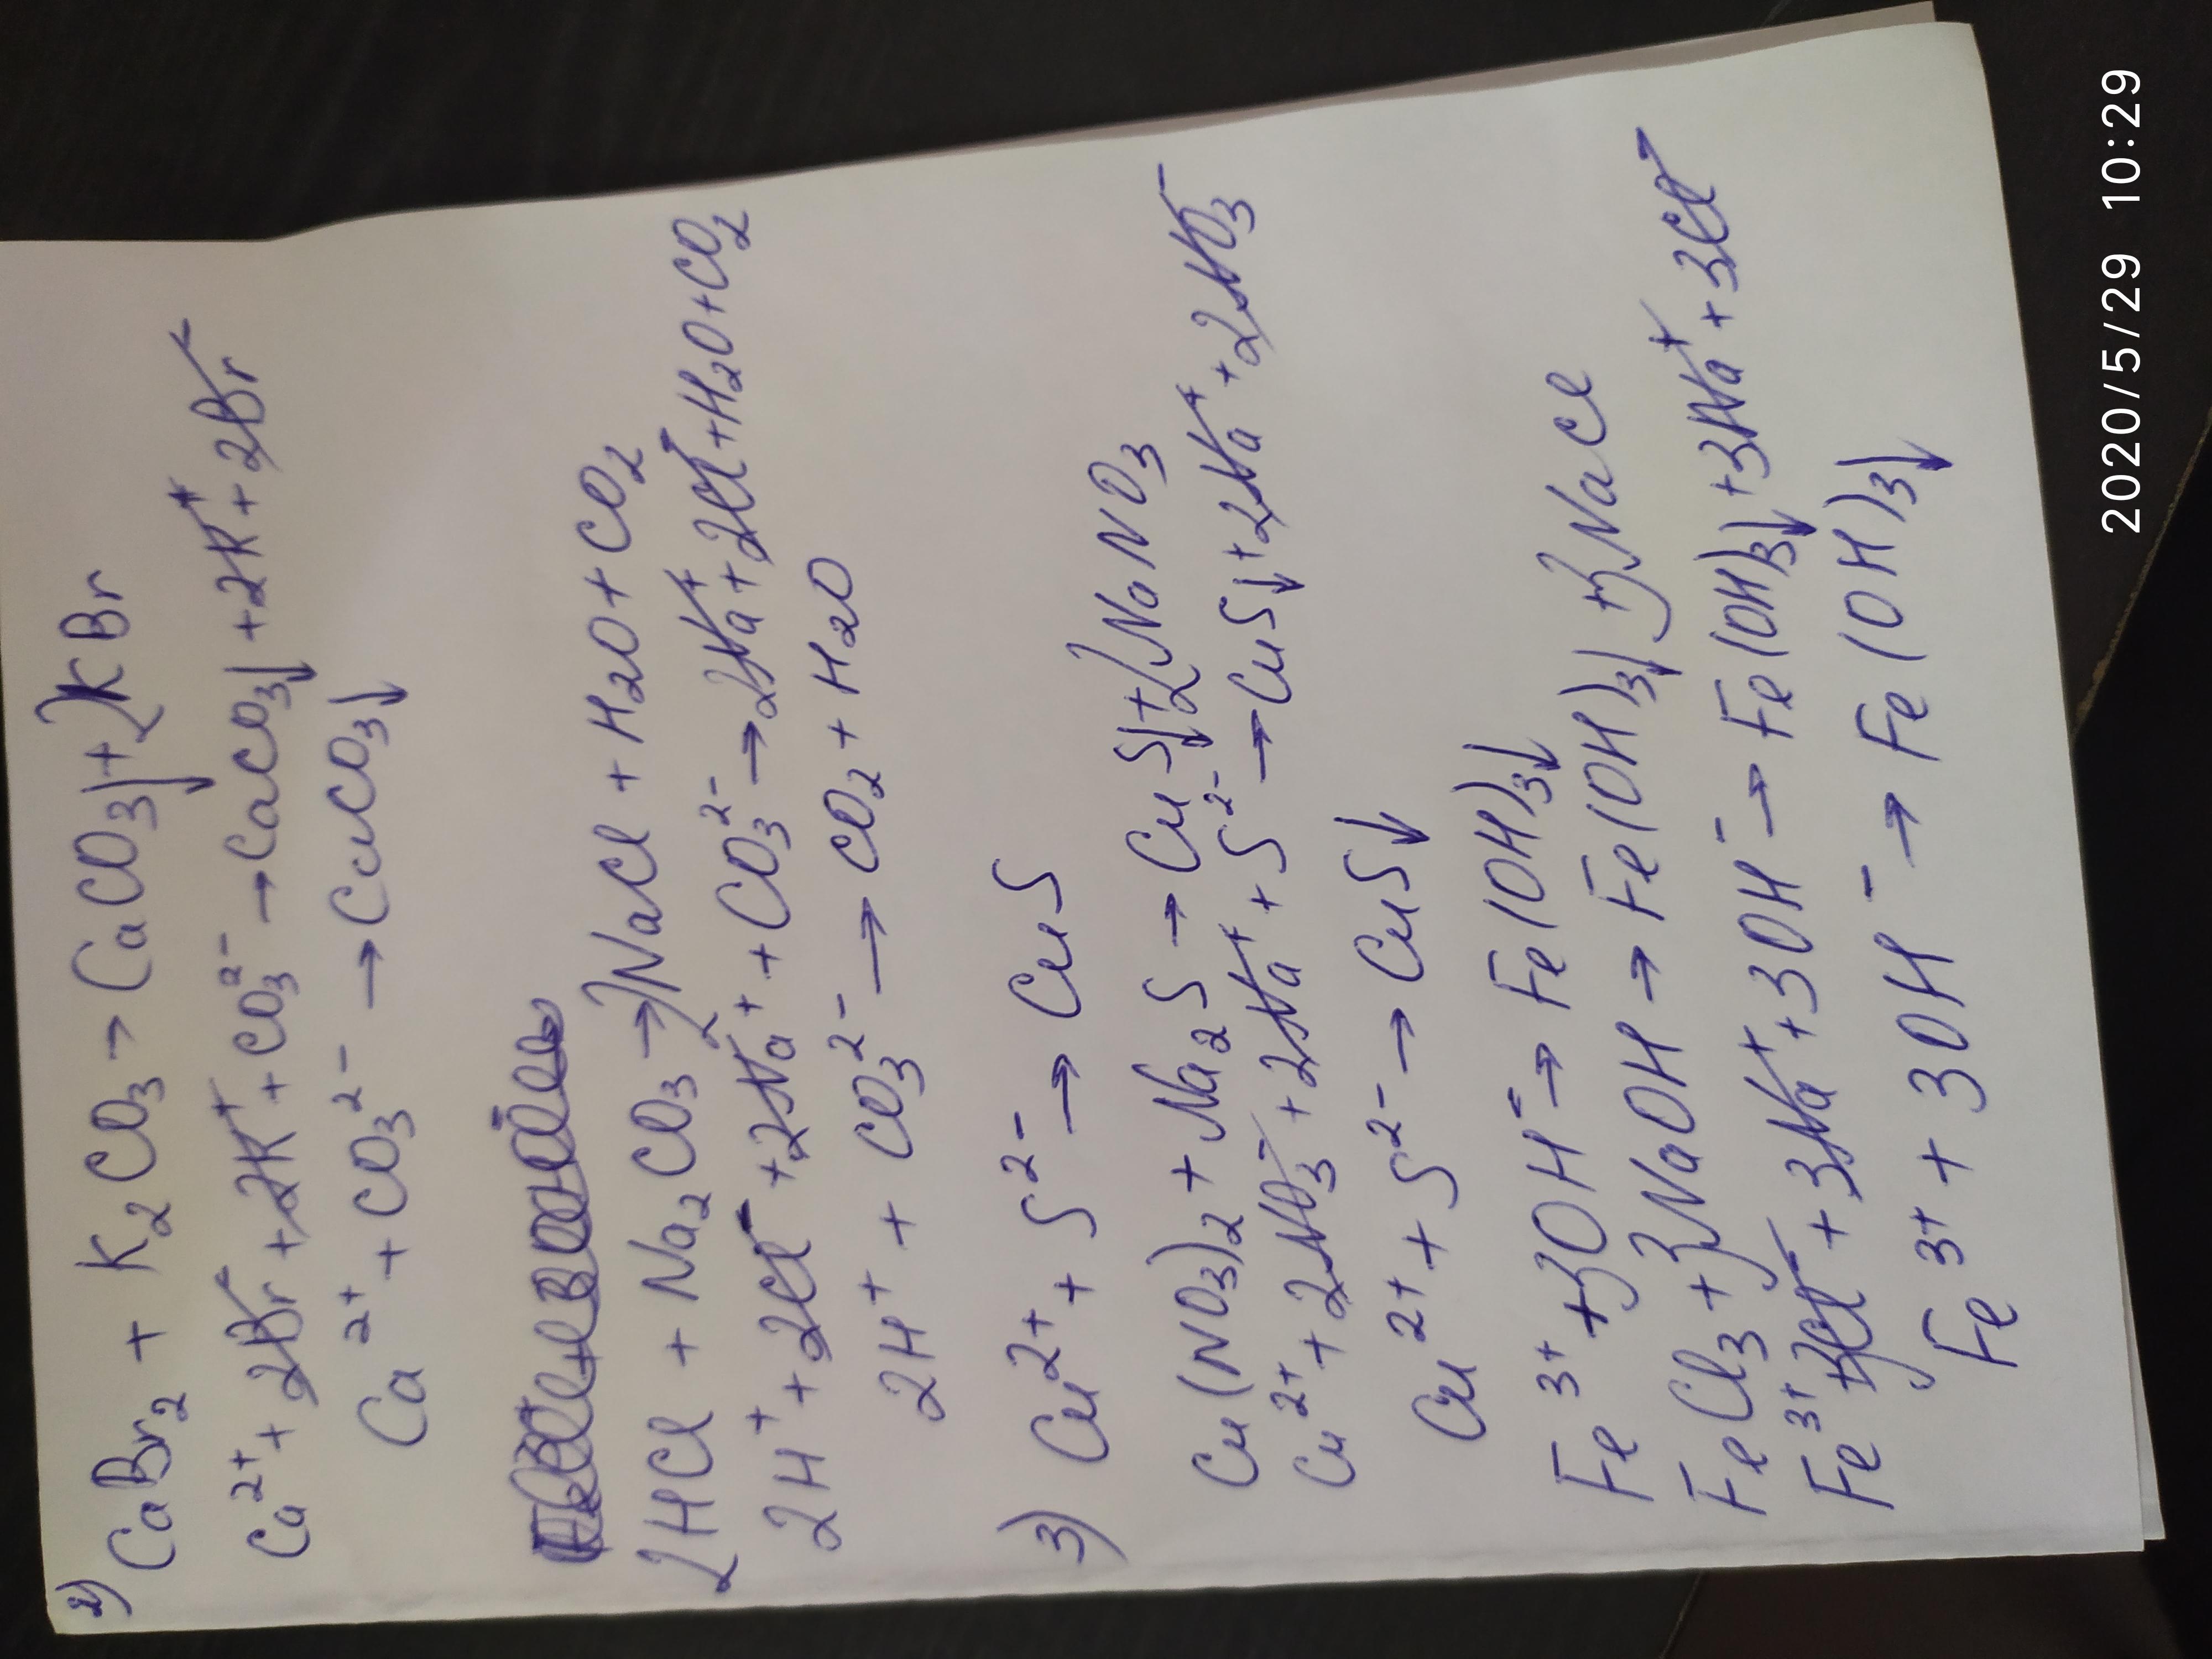 2) CaBr₂ + K₂CO₃ → CaCO₃↓ + 2KBr
Ca²⁺ + 2Br⁻ + 2K⁺ + CO₃²⁻ → CaCO₃↓ + 2K⁺ + 2Br⁻
Ca²⁺ + CO₃²⁻ → CaCO₃↓
2HCl + Na₂CO₃ → 2NaCl + H₂O + CO₂
2H⁺ + 2Cl⁻ + 2Na⁺ + CO₃²⁻ → 2Na⁺ + 2Cl⁻ + H₂O + CO₂
2H⁺ + CO₃²⁻ → CO₂ + H₂O
3) Cu²⁺ + S²⁻ → CuS
Cu(NO₃)₂ + Na₂S → CuS↓ + 2NaNO₃
Cu²⁺ + 2NO₃⁻ + 2Na⁺ + S²⁻ → CuS↓ + 2Na⁺ + 2NO₃⁻
Cu²⁺ + S²⁻ → CuS↓
Fe³⁺ + 3OH⁻ → Fe(OH)₃↓
FeCl₃ + 3NaOH → Fe(OH)₃↓ + 3NaCl
Fe³⁺ + 3Cl⁻ + 3Na⁺ + 3OH⁻ → Fe(OH)₃↓ + 3Na⁺ + 3Cl⁻
Fe³⁺ + 3OH⁻ → Fe(OH)₃↓
2020/5/29 10:29